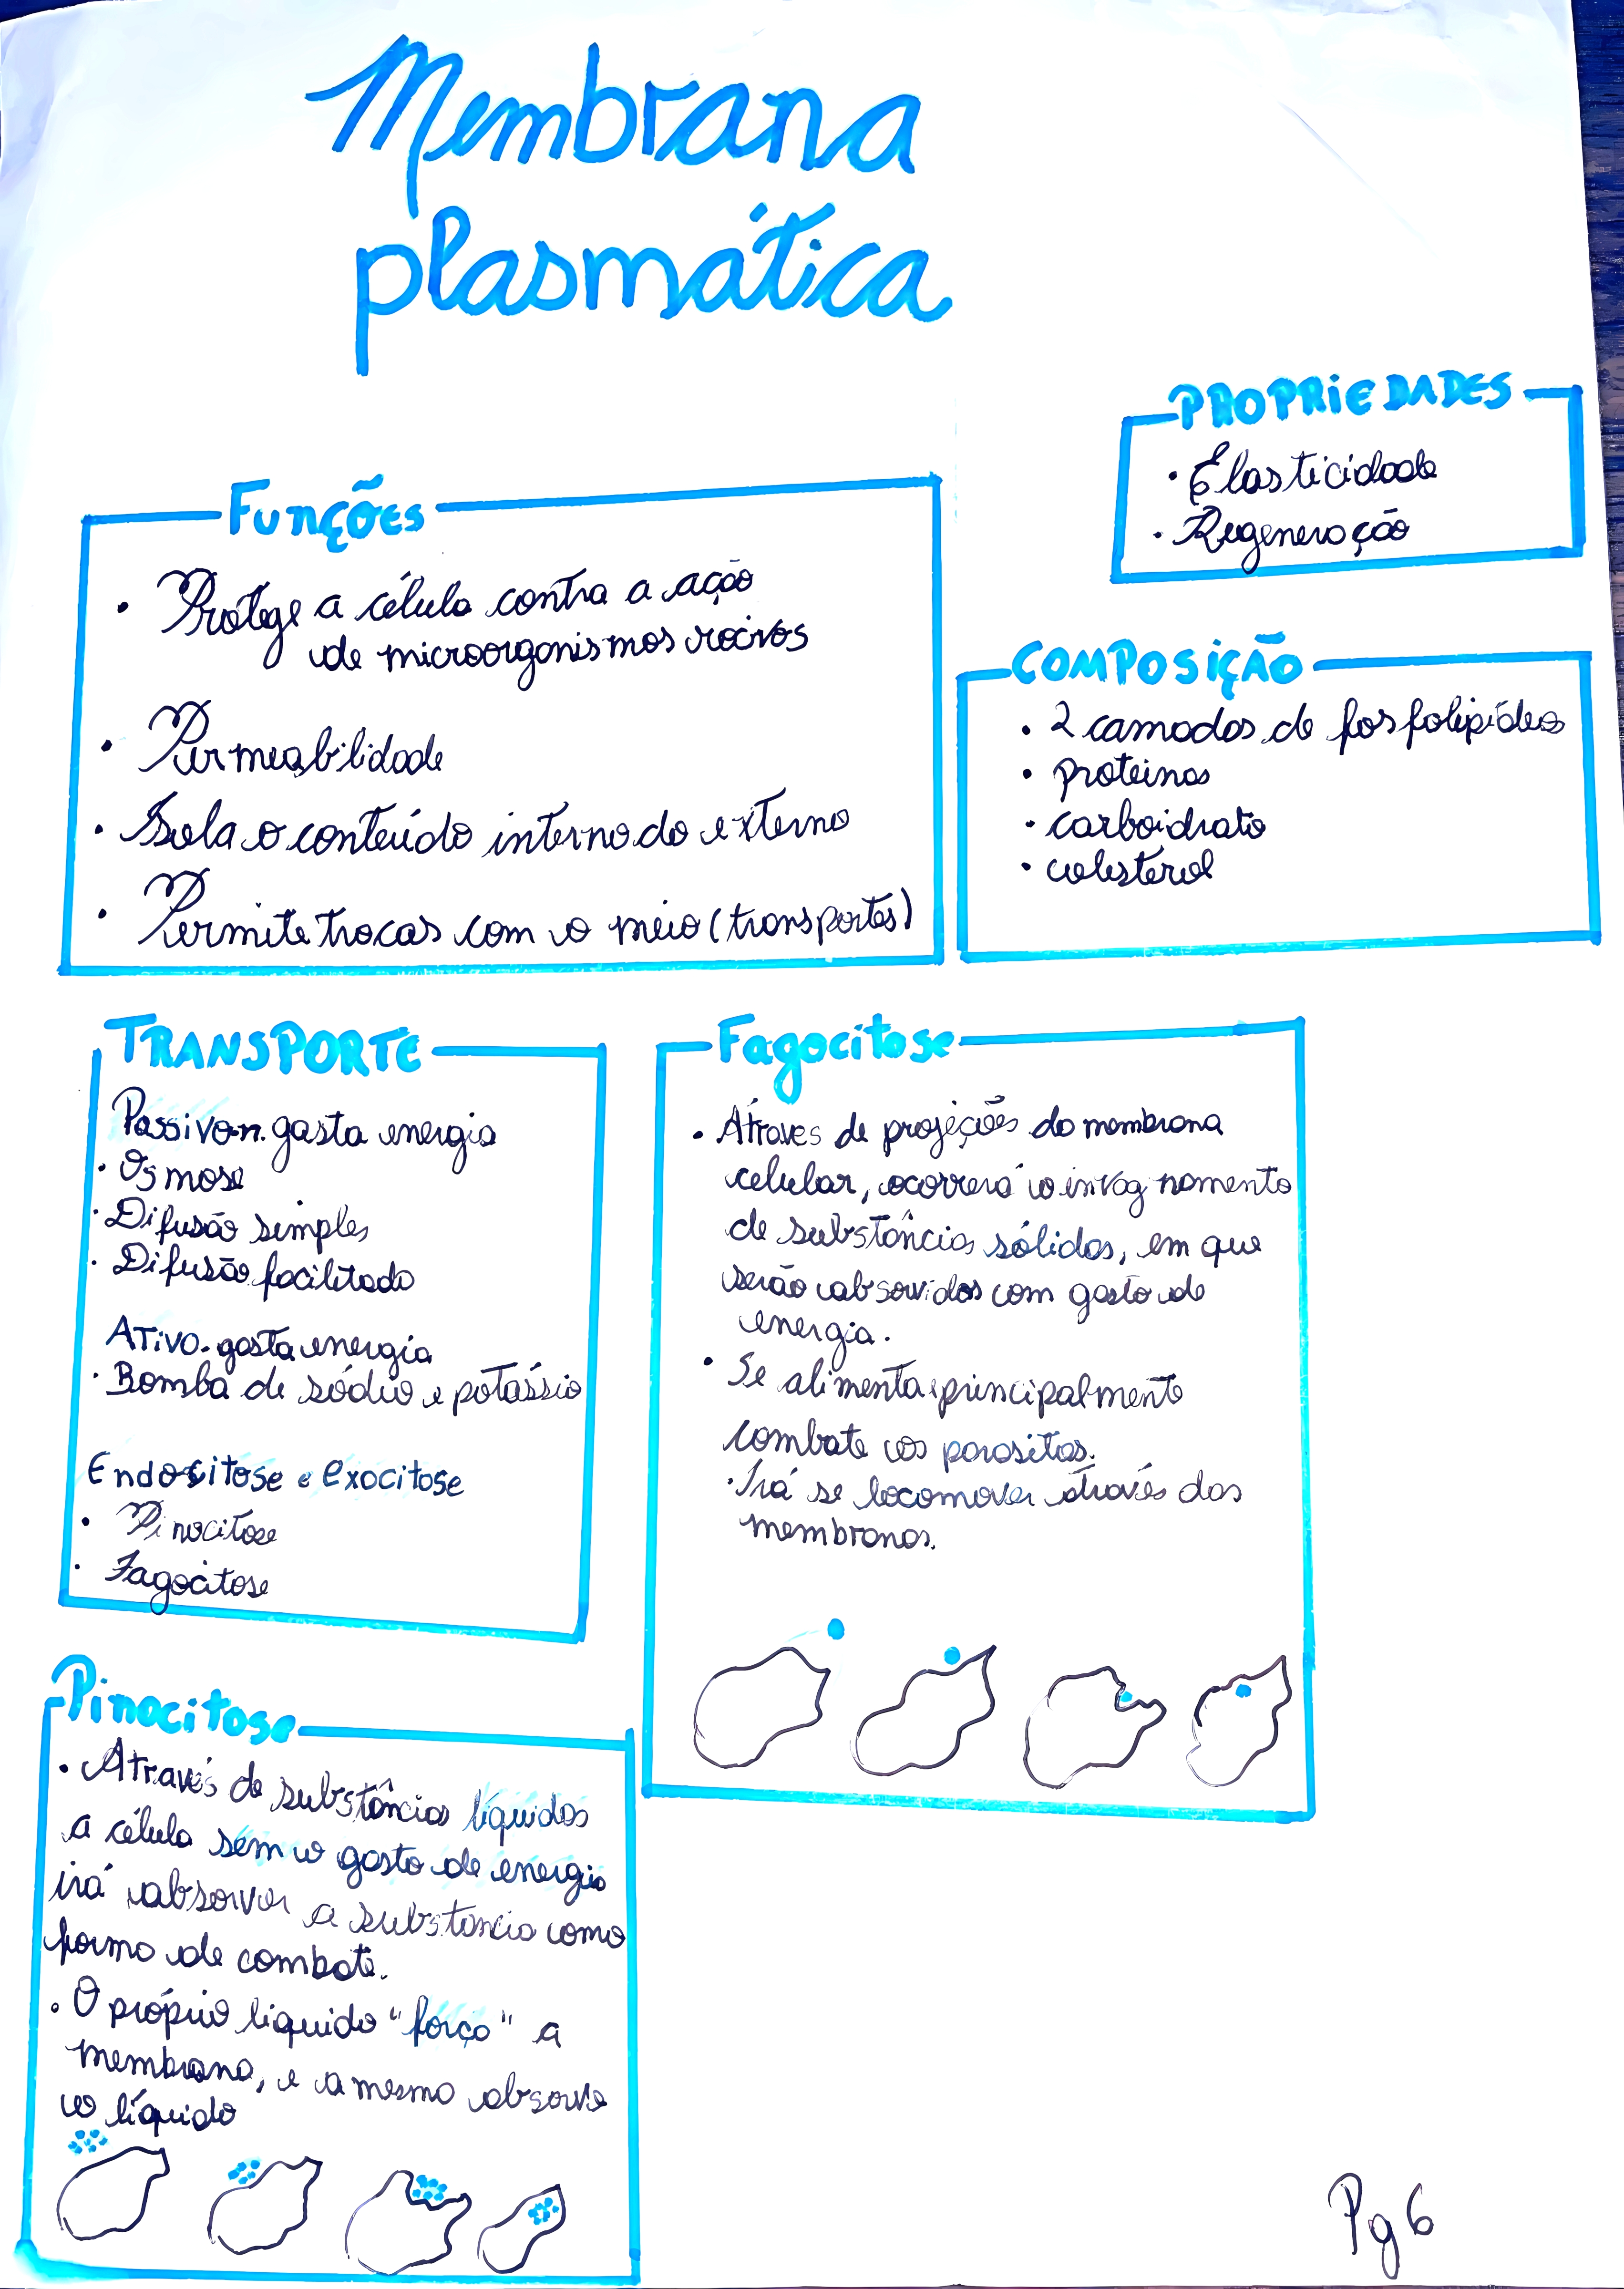 Membrana
plasmática
PROPRIEDADES
• Elasticidade
• Regeneração
Funções
• Protege a célula contra a ação
de microorganismos nocivos
• Permeabilidade
• Isola o conteúdo interno do externo
• Permite trocas com o meio (transportes)
COMPOSIÇÃO
• 2 camadas de fosfolipídeos
• proteinas
• carboidrato
• colesterol
TRANSPORTE
Passivo-n. gasta energia
• Osmose
• Difusão simples
• Difusão facilitada
Ativo-gasta energia
• Bomba de sódio e potássio
Endocitose e exocitose
• Pinocitose
• Fagocitose
Fagocitose
• Através de projeções da membrana
celular, ocorrerá o invag namento
de substâncias sólidas, em que
serão absorvidas com gasto de
energia.
• Se alimenta e principalmente
combate os parasitas.
• Irá se locomover através das
membranas.
Pinocitose
• Através de substâncias líquidas
a célula sem o gasto de energia
irá absorver a substancia como
forma de combate.
• O próprio líquido "força" a
membrana, e a mesma absorve
o líquido
Pg 6